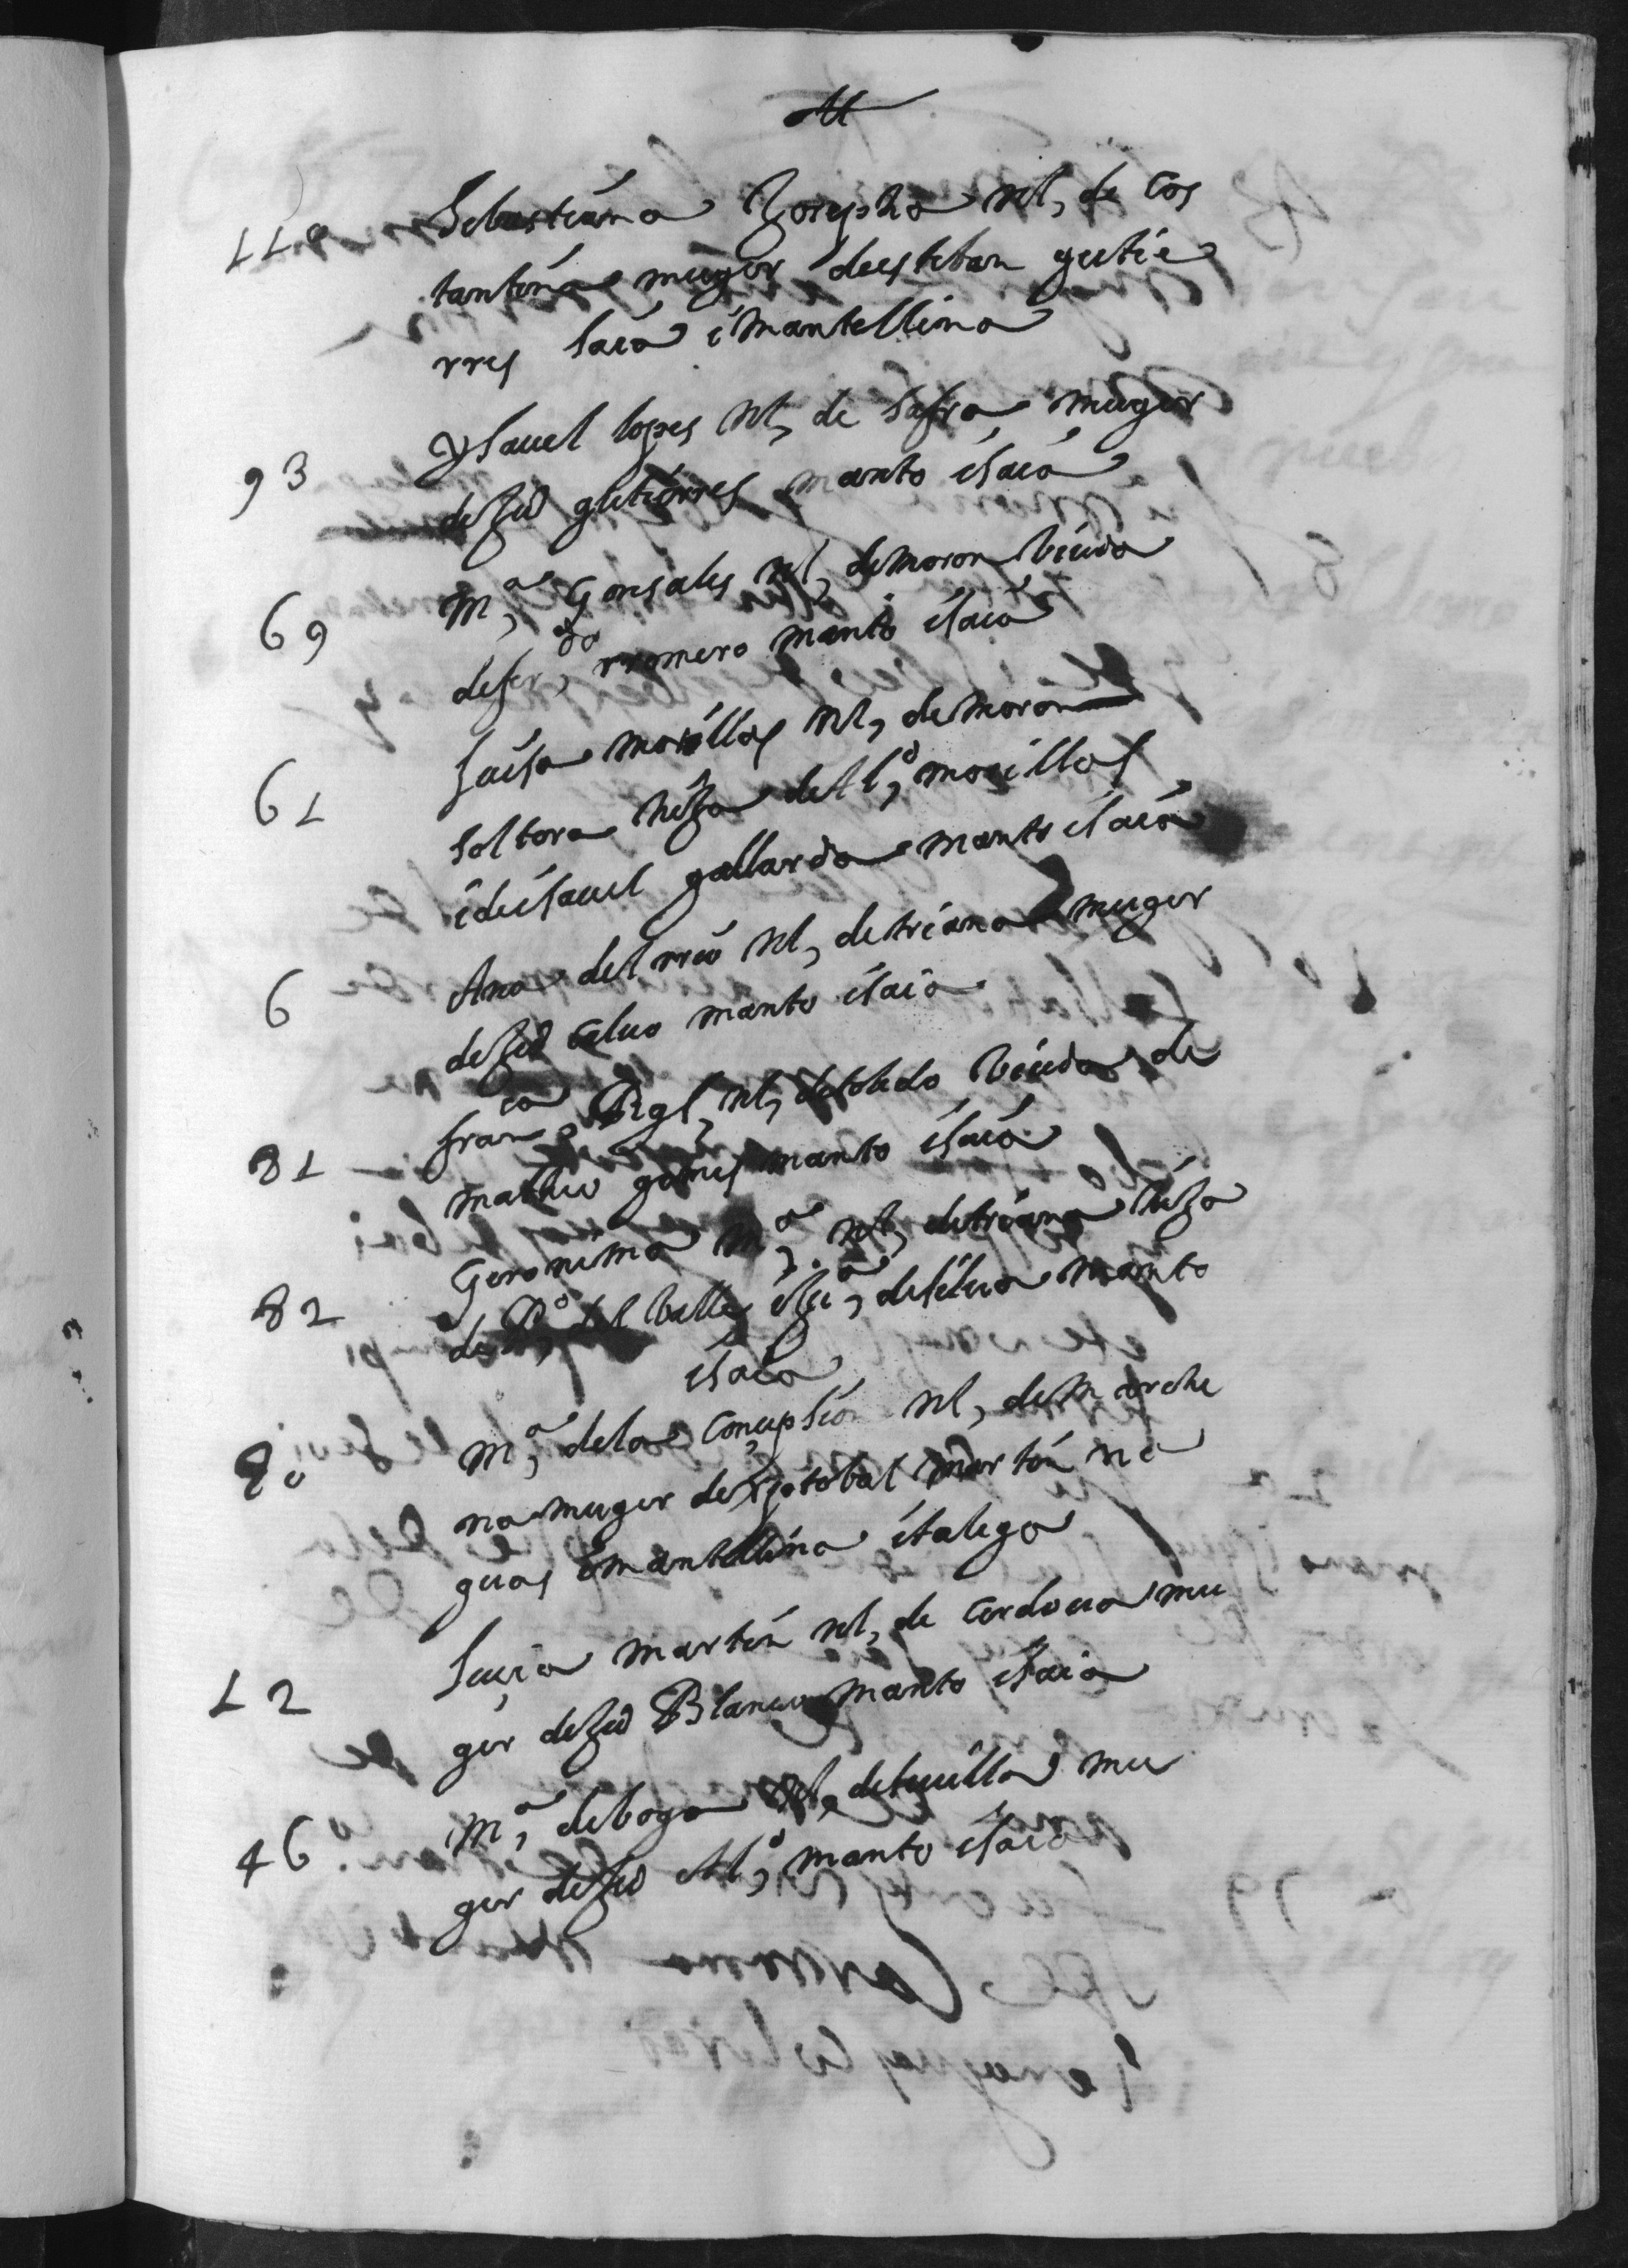 110 Sebastiana Josepha Nl, de Cos
tantina muger de esteban gutie
rres saia i mantellina
93 Ysavel lopes Nl, de Safra muger
de Ju° gutierres manto isaia
69 Mª, Gonsales Nl, de moron biuda
defer,do rromero manto isaia
61 Luisa morillas Nl, de moron
soltera hija de Al,º morillas
i deisavel gallarda manto isaia
6 Ana del rrio Nl, de triana muger
de Ju° Calvo manto isaia
81 franca, Rigl, Nl, de toledo biuda de
matheo gomes manto isaia
82 Geronima Mª, Nl, de triana hija
de Pº, del balle i Juª, desilva manto
isaia
80 Mª, dela Conçepsion Nl, de M arche
na muger de xptobal martin na
guas i mantellina italega
12 Luçia martin Nl, de Cordova mu
ger de Ju° Blanco manto isaia
46 Mª, de boga Nl, desevilla mu
ger de Ju° Al,º manto isaia